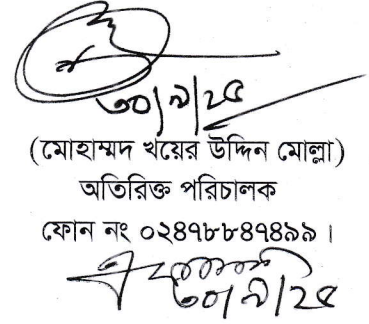 ৩০/৯/২৫
(মোহাম্মদ খয়ের উদ্দিন মোল্লা)
অতিরিক্ত পরিচালক
ফোন নং ০২৪৭৮৮৪৭৪৯৯ ।
৩০/৯/২৫